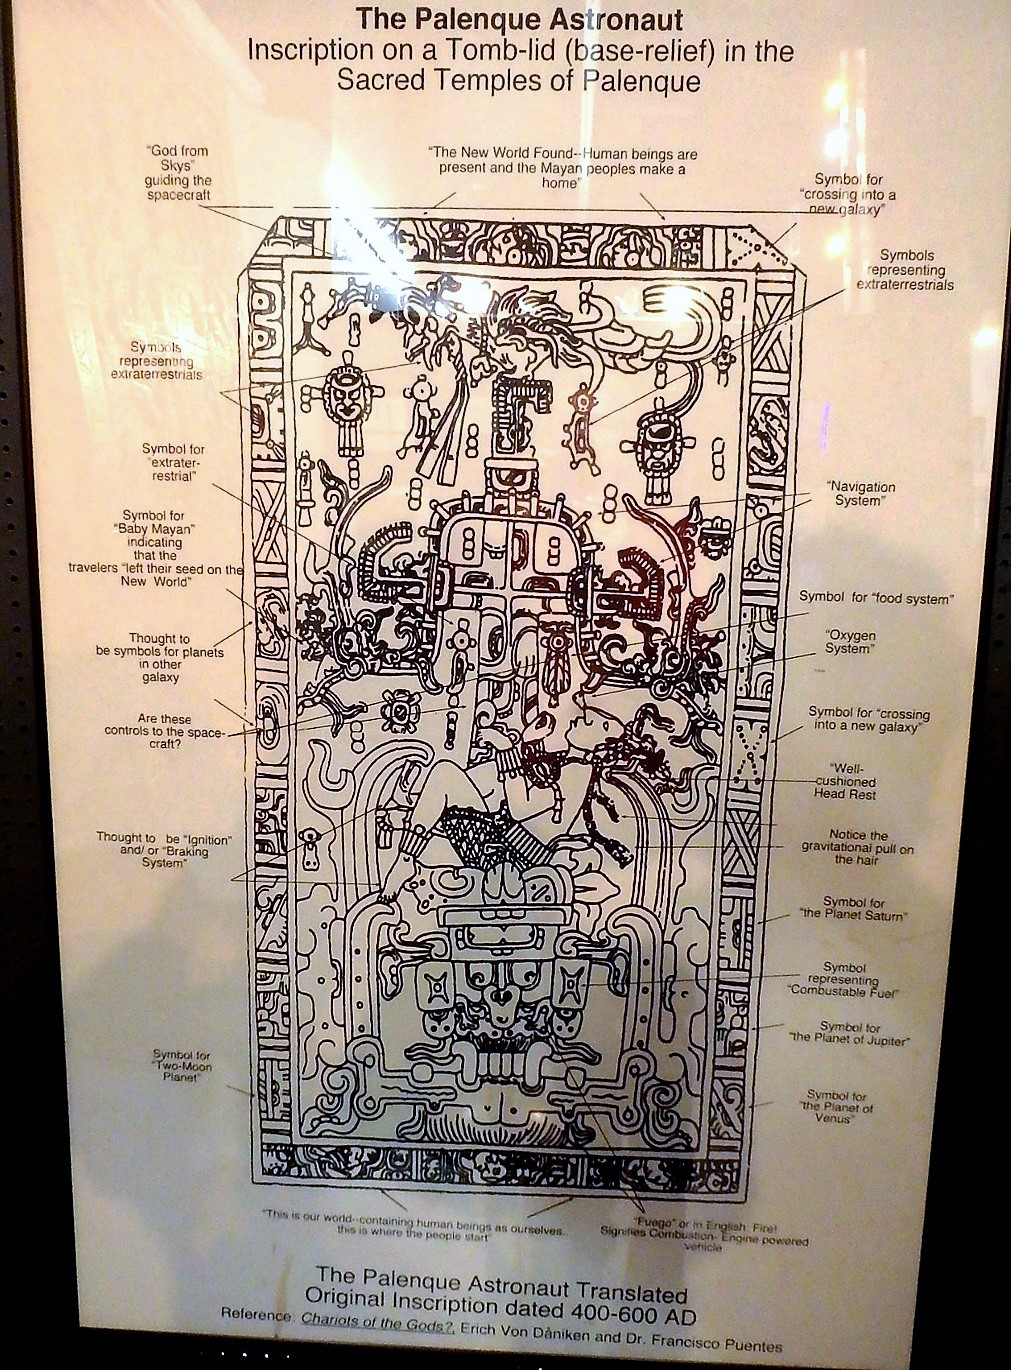 The Palenque Astronaut
Inscription on a Tomb-lid (base-relief) in the
Sacred Temples of Palenque
"God from
Skys"
guiding the
spacecraft
"The New World Found--Human beings are
present and the Mayan peoples make a
home"
Symbol for
"crossing into a
new galaxy"
Symbols
representing
extraterrestrials
Symbols
representing
extraterrestrials
Symbol for
"extrater-
restrial"
Symbol for
"Baby Mayan"
indicating
that the
travelers "left their seed on the
New World"
Thought to
be symbols for planets
in other
galaxy
Are these
controls to the space-
craft?
Thought to be "Ignition"
and/ or "Braking
System"
Symbol for
"Two-Moon
Planet"
"Navigation
System"
Symbol for "food system"
"Oxygen
System"
Symbol for "crossing
into a new galaxy"
"Well-
cushioned
Head Rest
Notice the
gravitational pull on
the hair
Symbol for
"the Planet Saturn"
Symbol
representing
"Combustable Fuel"
Symbol for
"the Planet of Jupiter"
Symbol for
"the Planet of
Venus"
"This is our world--containing human beings as ourselves...
this is where the people start"
"Fuego" or in English: Fire!
Signifies Combustion- Engine powered
vehicle
The Palenque Astronaut Translated
Original Inscription dated 400-600 AD
Reference: Chariots of the Gods?, Erich Von Dåniken and Dr. Francisco Puentes